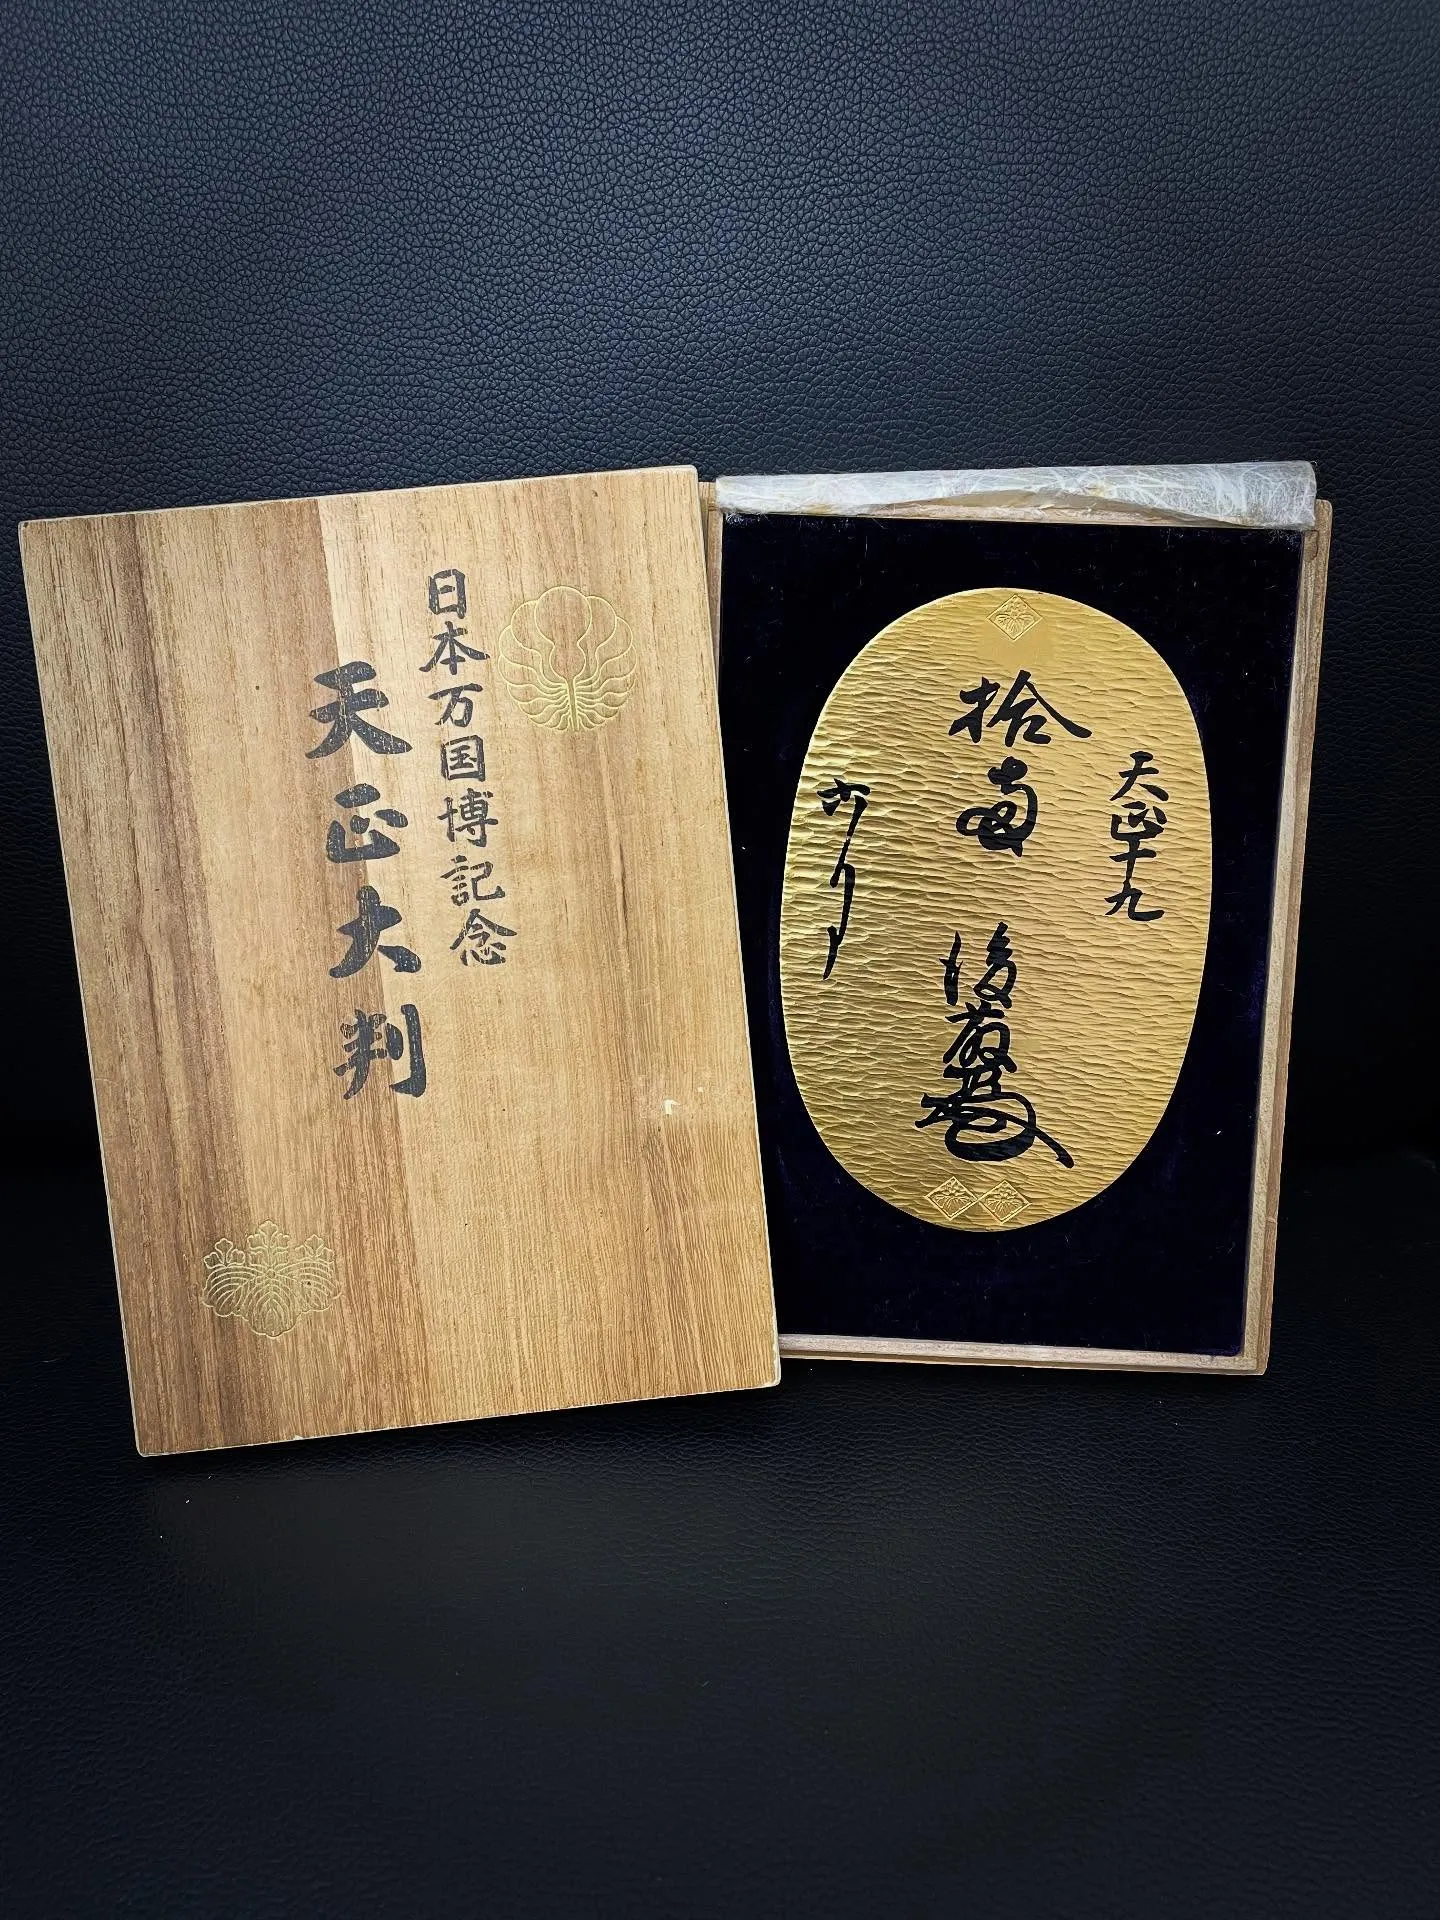 日本万国博記念
天正大判
天正十九
拾両 後藤